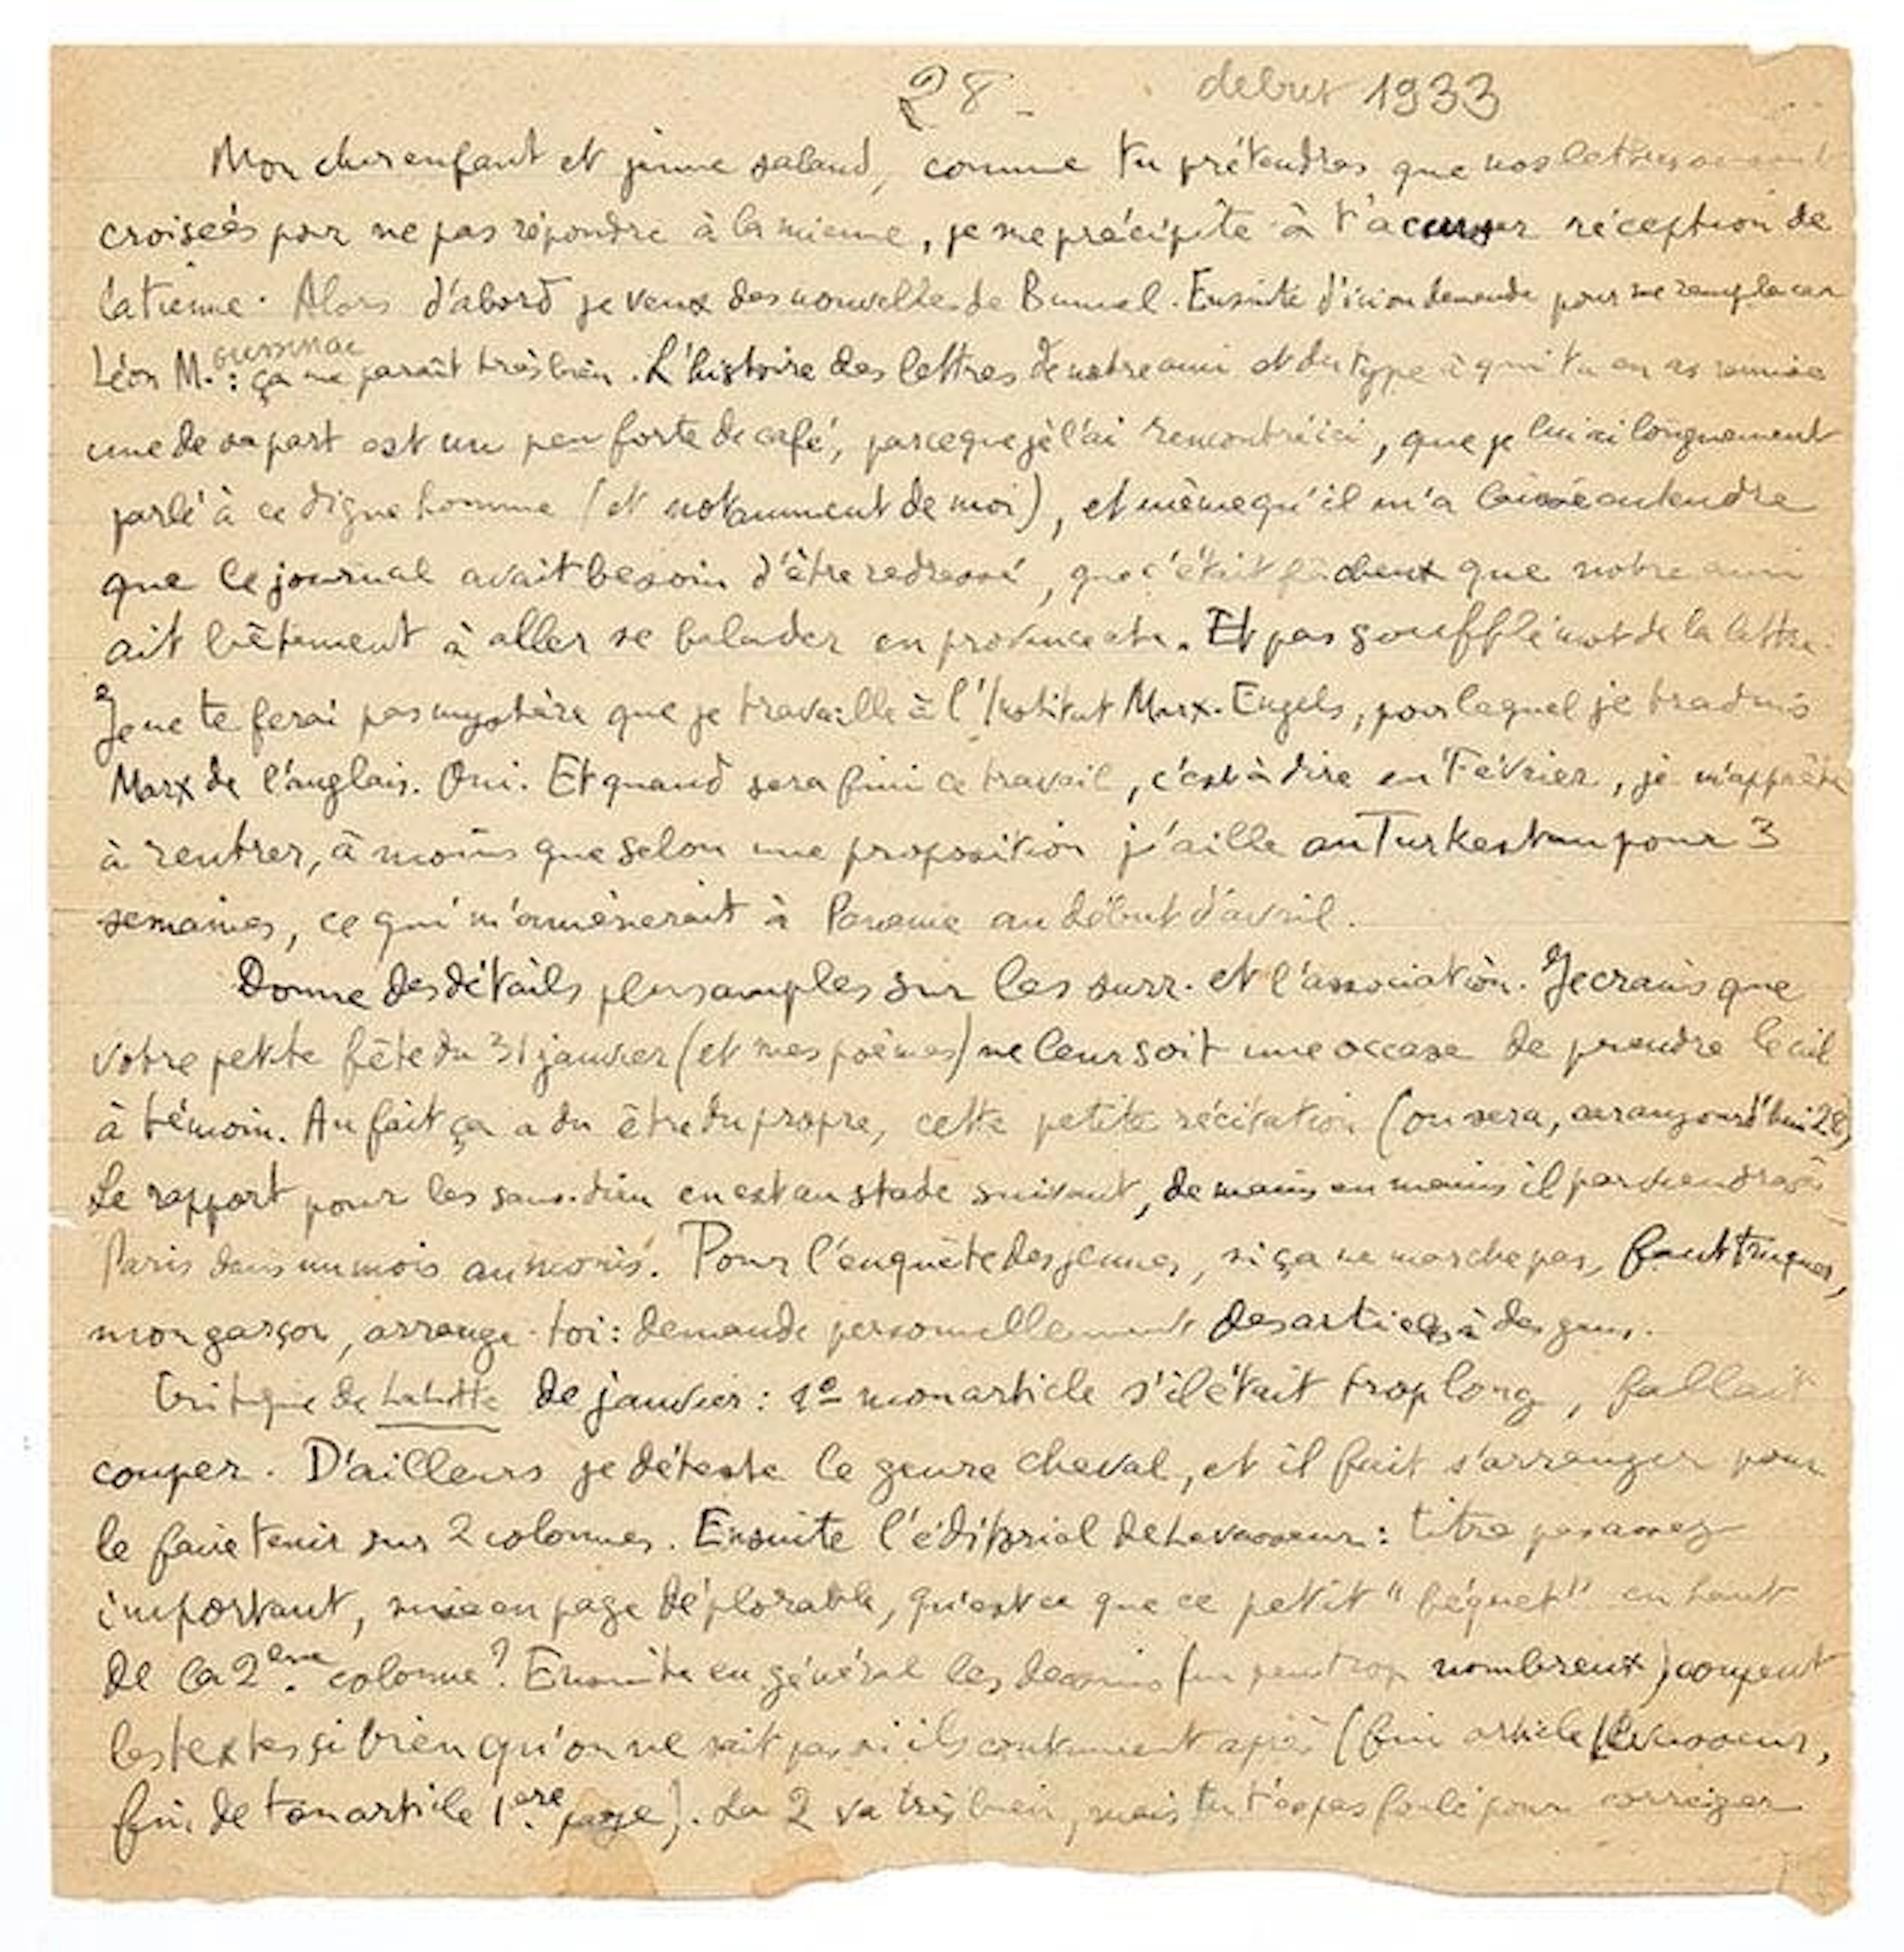 28 - debut 1933
Mon cher enfant et jeune salaud, comme tu prétendras que nos lettres se sont
croisées pour ne pas répondre à la mienne, je me précipite à t'accuser réception de
la tienne. Alors d'abord je veux des nouvelles de Bunuel. Ensuite d'ici on demande pour me remplacer
Léon M. oussinac : ça me paraît très bien. L'histoire des lettres de notre ami et du type à qui tu en as remise
une de sa part est un peu forte de café, parce que je l'ai rencontré ici, que je lui ai longuement
parlé à ce digne homme (et notamment de moi), et même qu'il m'a laissé entendre
que le journal avait besoin d'être redressé, que c'était fâcheux que notre ami
ait bêtement à aller se balader en province etc. Et pas soufflé mot de la lettre.
Je ne te ferai pas mystère que je travaille à l'Institut Marx-Engels, pour lequel je traduis
Marx de l'anglais. Oui. Et quand sera fini ce travail, c'est à dire en Février, je m'apprête
à rentrer, à moins que selon une proposition j'aille au Turkestan pour 3
semaines, ce qui m'amènerait à Paname au début d'avril.
Donne des détails plus amples sur les surr. et l'association. Je crains que
votre petite fête du 31 janvier (et mes poèmes) ne leur soit une occase de prendre le ciel
à témoin. Au fait ça a du être du propre, cette petite récitation (ou sera, car aujourd'hui 28)
Le rapport pour les sans-dieu en est au stade suivant, de mains en mains il parviendra à
Paris dans un mois au moins. Pour l'enquête des jeunes, si ça ne marche pas, faut truquer,
mon garçon, arrange-toi : demande personnellement des articles à des gens.
Critique de La Lutte de janvier : 1º mon article s'il était trop long, fallait
couper. D'ailleurs je déteste le genre cheval, et il faut s'arranger pour
le faire tenir sur 2 colonnes. Ensuite l'éditorial de Levasseur : titre pas assez
important, mise en page déplorable, qu'est ce que ce petit "béquet" en haut
de la 2eme colonne ? Ensuite en général les dessins (un peu trop nombreux) coupent
les textes si bien qu'on ne sait pas si ils continuent après (fin article Levasseur,
fin de ton article 1ere page). La 2 va très bien, mais tu t'es pas foulé pour corriger